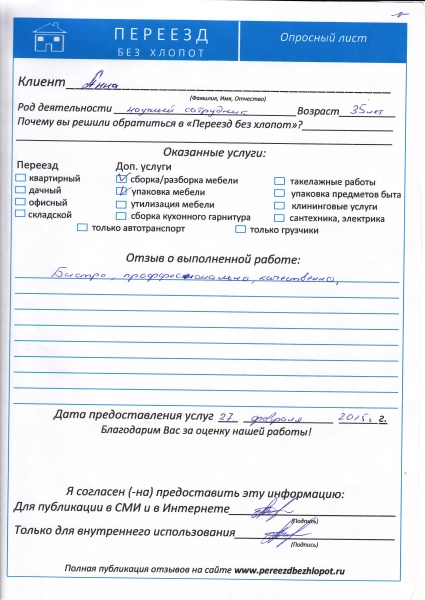 ПЕРЕЕЗД
БЕЗ ХЛОПОТ
Опросный лист
Клиент Анна
(Фамилия, Имя, Отчество)
Род деятельности научный сотрудник Возраст 35 лет
Почему вы решили обратиться в «Переезд без хлопот»?
Оказанные услуги:
Переезд
квартирный
дачный
офисный
складской
Доп. услуги
сборка/разборка мебели
упаковка мебели
утилизация мебели
сборка кухонного гарнитура
такелажные работы
упаковка предметов быта
клининговые услуги
сантехника, электрика
только автотранспорт
только грузчики
Отзыв о выполненной работе:
Быстро, профессионально, качественно,
Дата предоставления услуг 27 февраля 2015 г г.
Благодарим Вас за оценку нашей работы!
Я согласен (-на) предоставить эту информацию:
Для публикации в СМИ и в Интернете
(Подпись)
Только для внутреннего использования
(Подпись)
Полная публикация отзывов на сайте www.pereezdbezhlopot.ru